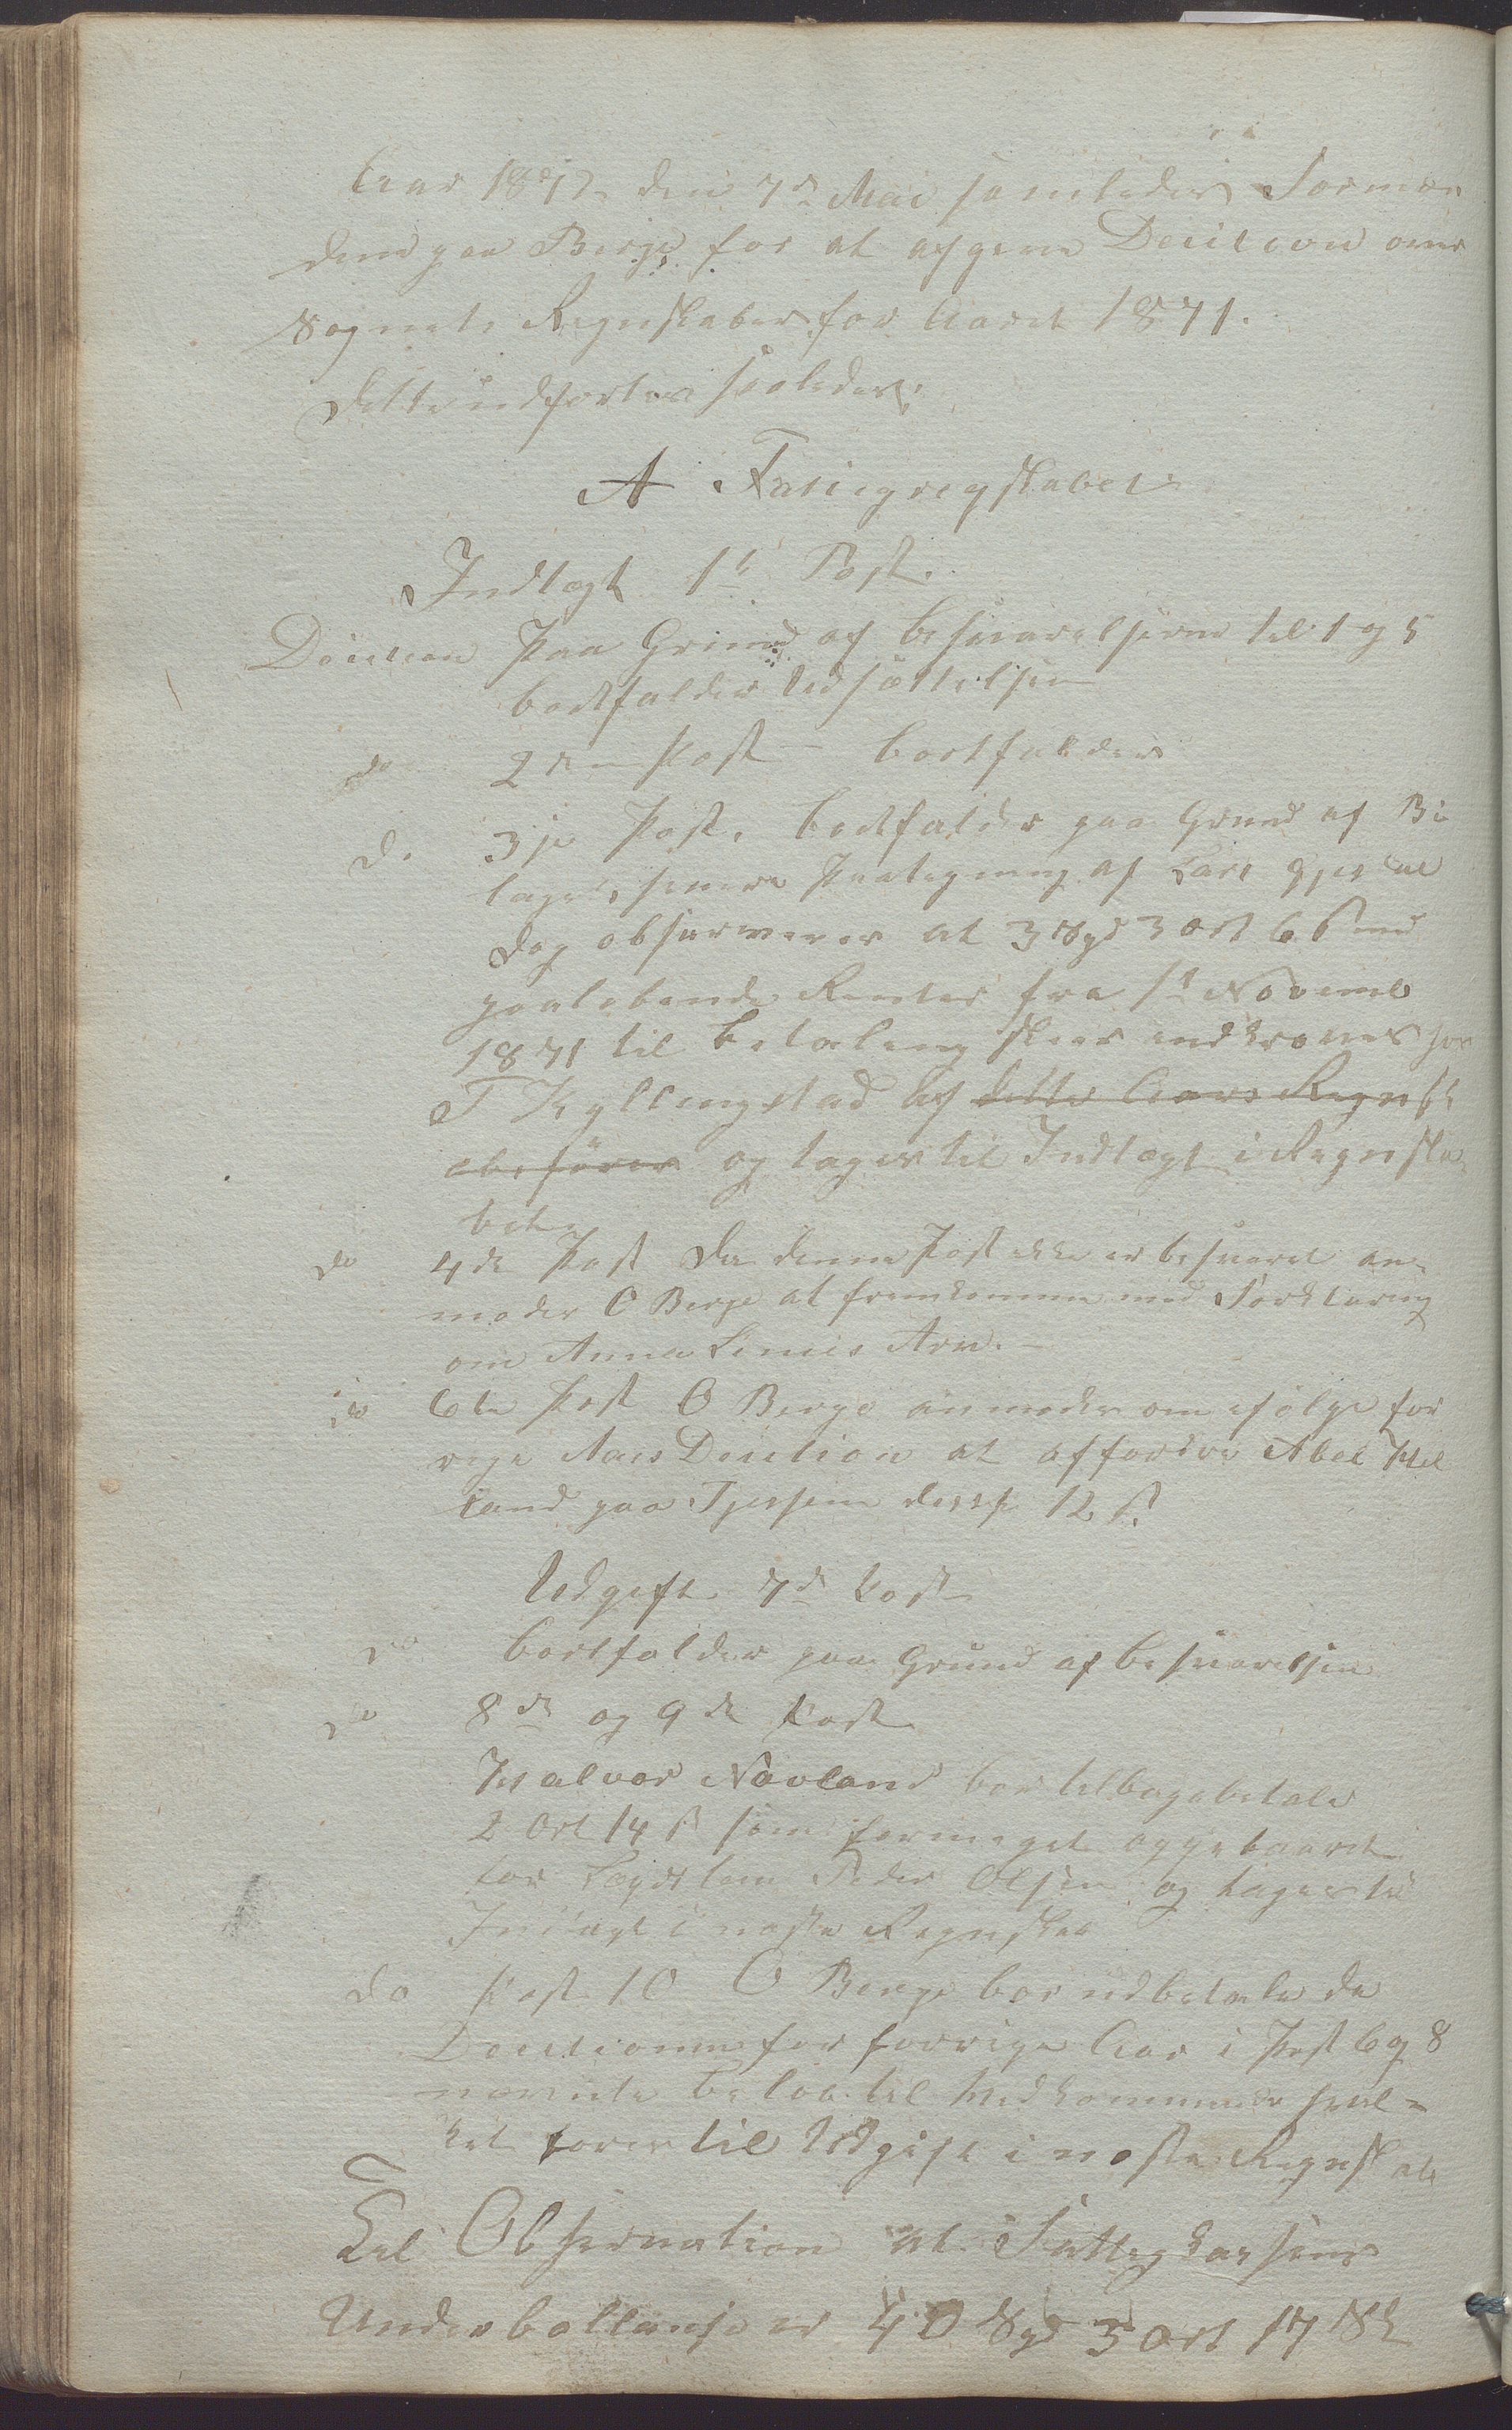 Aar 1872 den 7de Mai samledes Formæn
dene paa Berge for at afgive Decition over
Sognets Regnskaber for Aaret 1871.
Dette udførtes saaledes:
A Fatiggregskabet
Indtægt 1te Post.
Decition Paa Grund af Besvarelserne til 1 og 5
bortfalder Udsættelsen
do 2den Post – bortfalder
do 3je Post. bortfalder paa Grund af Bi
lagets senere Paategning af Lars
dog observeres at 3 Spd 3 Ort 6 ß med
paaløbende Renter fra 1te Novemb
1871 til Betaling skeer indkræves hos
T Kyllingstad af dette Aars Regnsk
abefører og tages til Indtægt i Regnska
bet.
do 4de Post Da denne Post ikke er besvaret an-
modes O Berge at fremkomme med Forklaring
om Anna Arv. –
do 6te Post O Berge anmodes om ifølge for
rige Aars Decition at affordre Abel Hel
land paa 12 ß.
Udgift 7de Post
do bortfalder paa Grund af Besvarelsen
do 8de og 9de Post
Halvor Navland bør tilbagebetale
2 Ort 14 ß som formeget oppebaaret
for Lægdslem Peder Olsen og tages til
Indtægt i næste Regnskab
do Post 10 O Berge bør udbetale de
Decitionen for forrige Aar i Post 6 og 8
nævnte Beløb til Vedkommende hvil-
ket føres til Udgift i næste Regnskab
Til Observation at Fattigkassens
Underballanse er 40 Spd 3 Ort 17 Sk